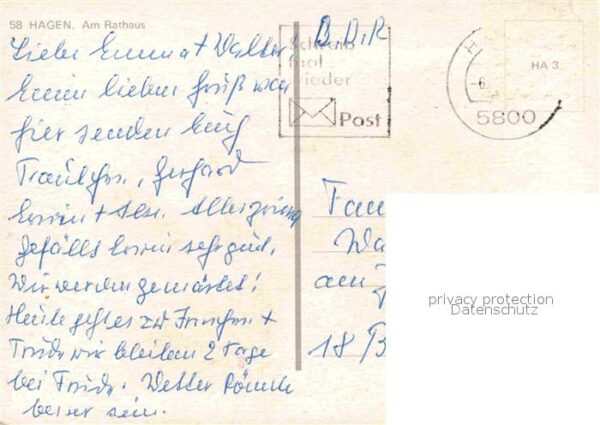 58 HAGEN. Am Rathaus
Liebe Emma + Walter
Einen lieben Gruß von
hier senden Euch
Traulchen, Gerhard
Erwin + Ilse.
gefälls Erwin sehr gut.
Wir werden gemästet!
Heute geht es zu +
Trude wir bleiben 2 Tage
bei Trude. Wetter könnte
besser sein.
B.D.R
Schreib
mal
wieder
Post
HA 3
5800
Fam
Wa
am
18 B
privacy protection
Datenschutz